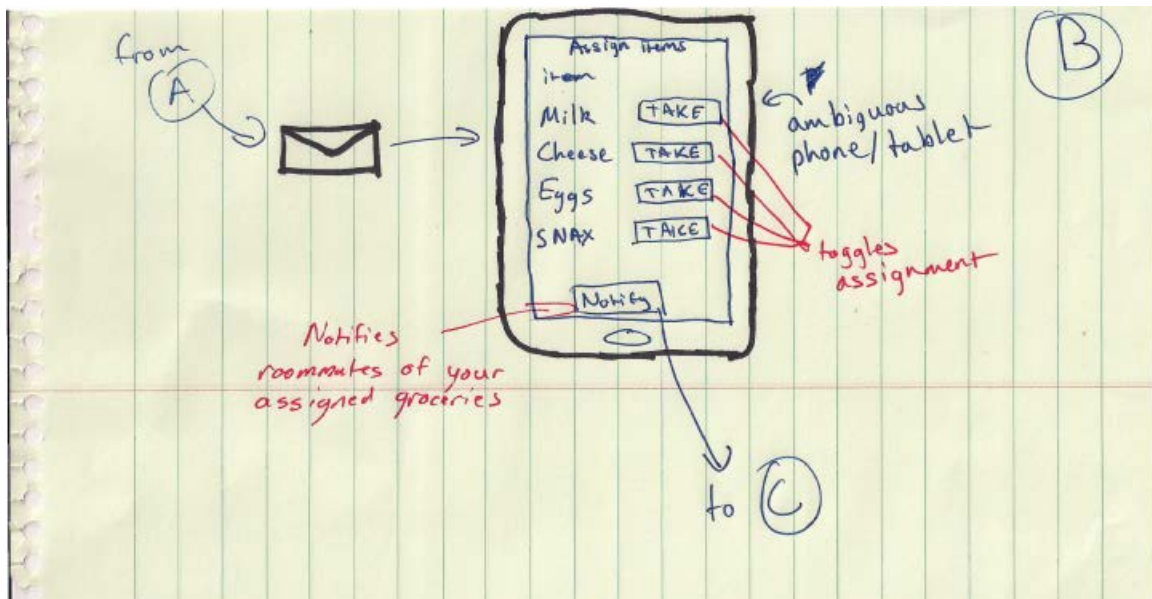 from
A
B
Assign items
item
Milk TAKE
Cheese TAKE
Eggs TAKE
SNAX TAKE
Notify
ambiguous
phone/tablet
toggles
assignment
Notifies
roommates of your
assigned groceries
to C